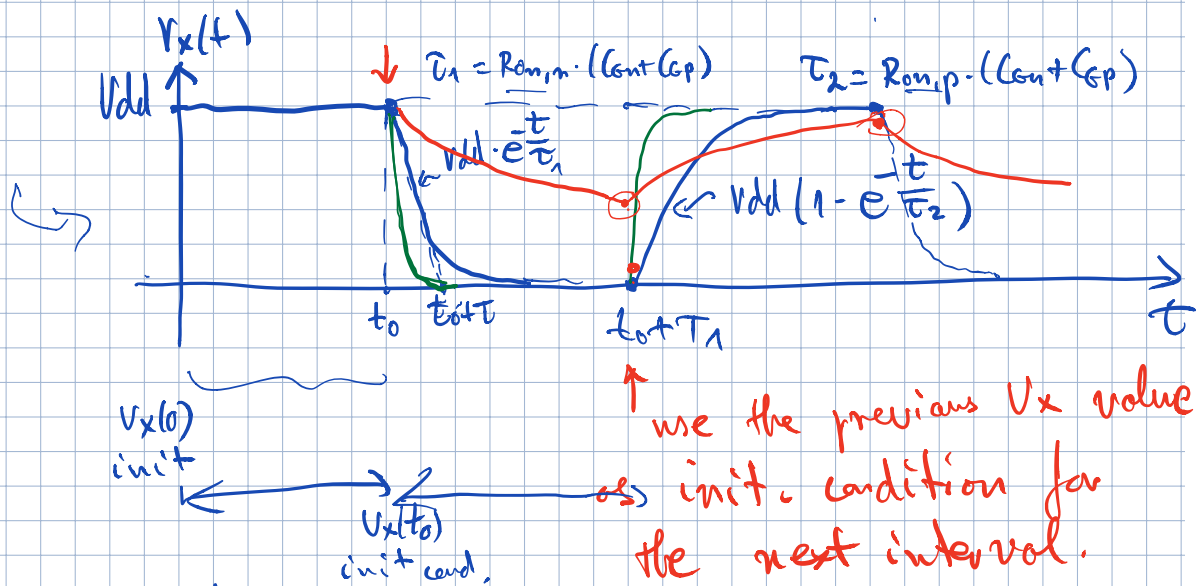 Vx(t)
Vdd
τ1 = Ron,n · (CGn+CGp)
τ2 = Ron,p · (CGn+CGp)
Vdd · e^-t/τ1
Vdd (1 - e^-t/τ2)
t0
t0+τ
t0+T1
t
Vx(0)
init
Vx(t0)
init cond.
use the previous Vx value
as init. condition for
the next interval.